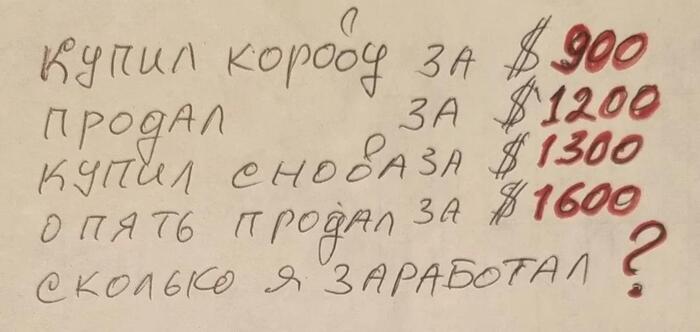 КУПИЛ КОРОВУ ЗА $900
ПРОДАЛ ЗА $1200
КУПИЛ СНОВА ЗА $1300
ОПЯТЬ ПРОДАЛ ЗА $1600
СКОЛЬКО Я ЗАРАБОТАЛ ?